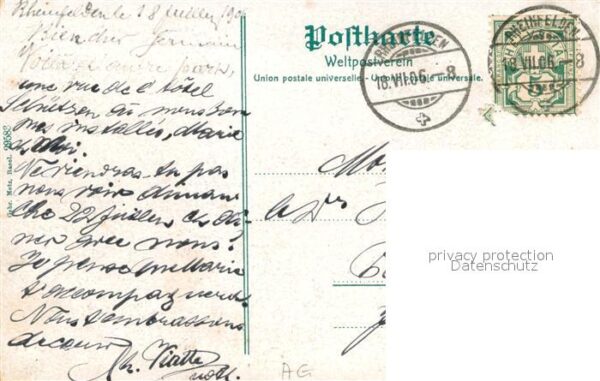 Rheinfelden le 18 Juillet 1906
Bien cher Germain
Voilà d'autre part,
une vue de l'hôtel
Schützen où nous som
mes installés, Marie
et moi.
Ne viendras-tu pas
nous voir diman
che 22 Juillet et dî
ner avec nous?
Je pense que Marie
t'accompagnera.
Nous t'embrassons
de coeur
Viatte
Postkarte
Weltpostverein
Union postale universelle. - Union postale universale.
RHEINFELDEN
18.VII.06.-8
RHEINFELDEN
18.VII.06.-8
5
Gebr. Metz, Basel.
privacy protection
Datenschutz
AG